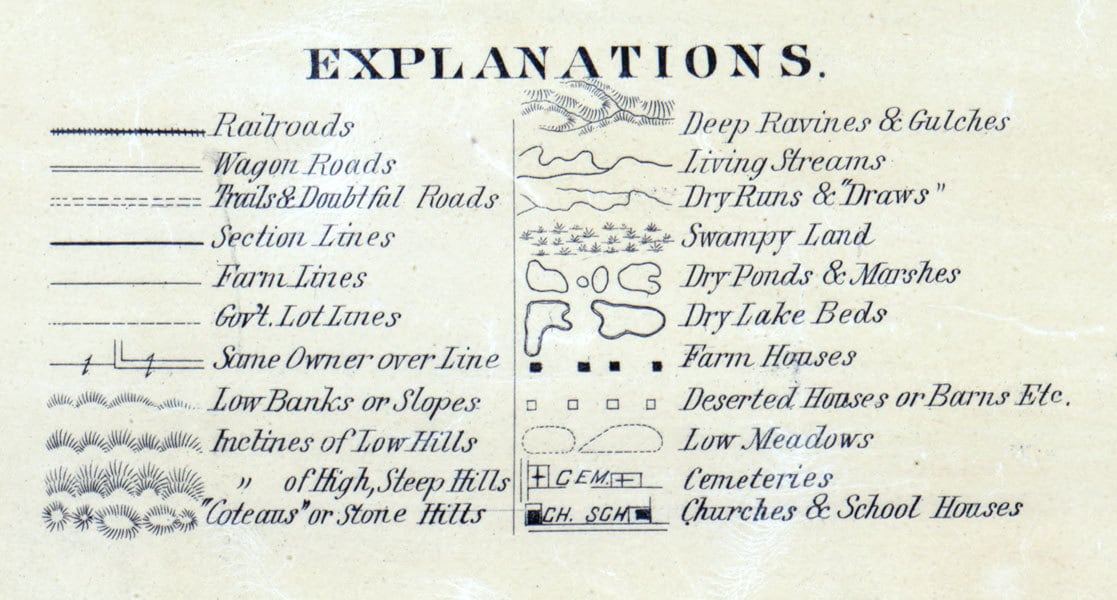 EXPLANATIONS.
Railroads
Wagon Roads
Trails & Doubtful Roads
Section Lines
Farm Lines
Gov't. Lot Lines
Same Owner over Line
Low Banks or Slopes
Inclines of Low Hills
" of High, Steep Hills
"Coteaus" or Stone Hills
Deep Ravines & Gulches
Living Streams
Dry Runs & "Draws"
Swampy Land
Dry Ponds & Marshes
Dry Lake Beds
Farm Houses
Deserted Houses or Barns Etc.
Low Meadows
CEM. Cemeteries
CH. SCH Churches & School Houses